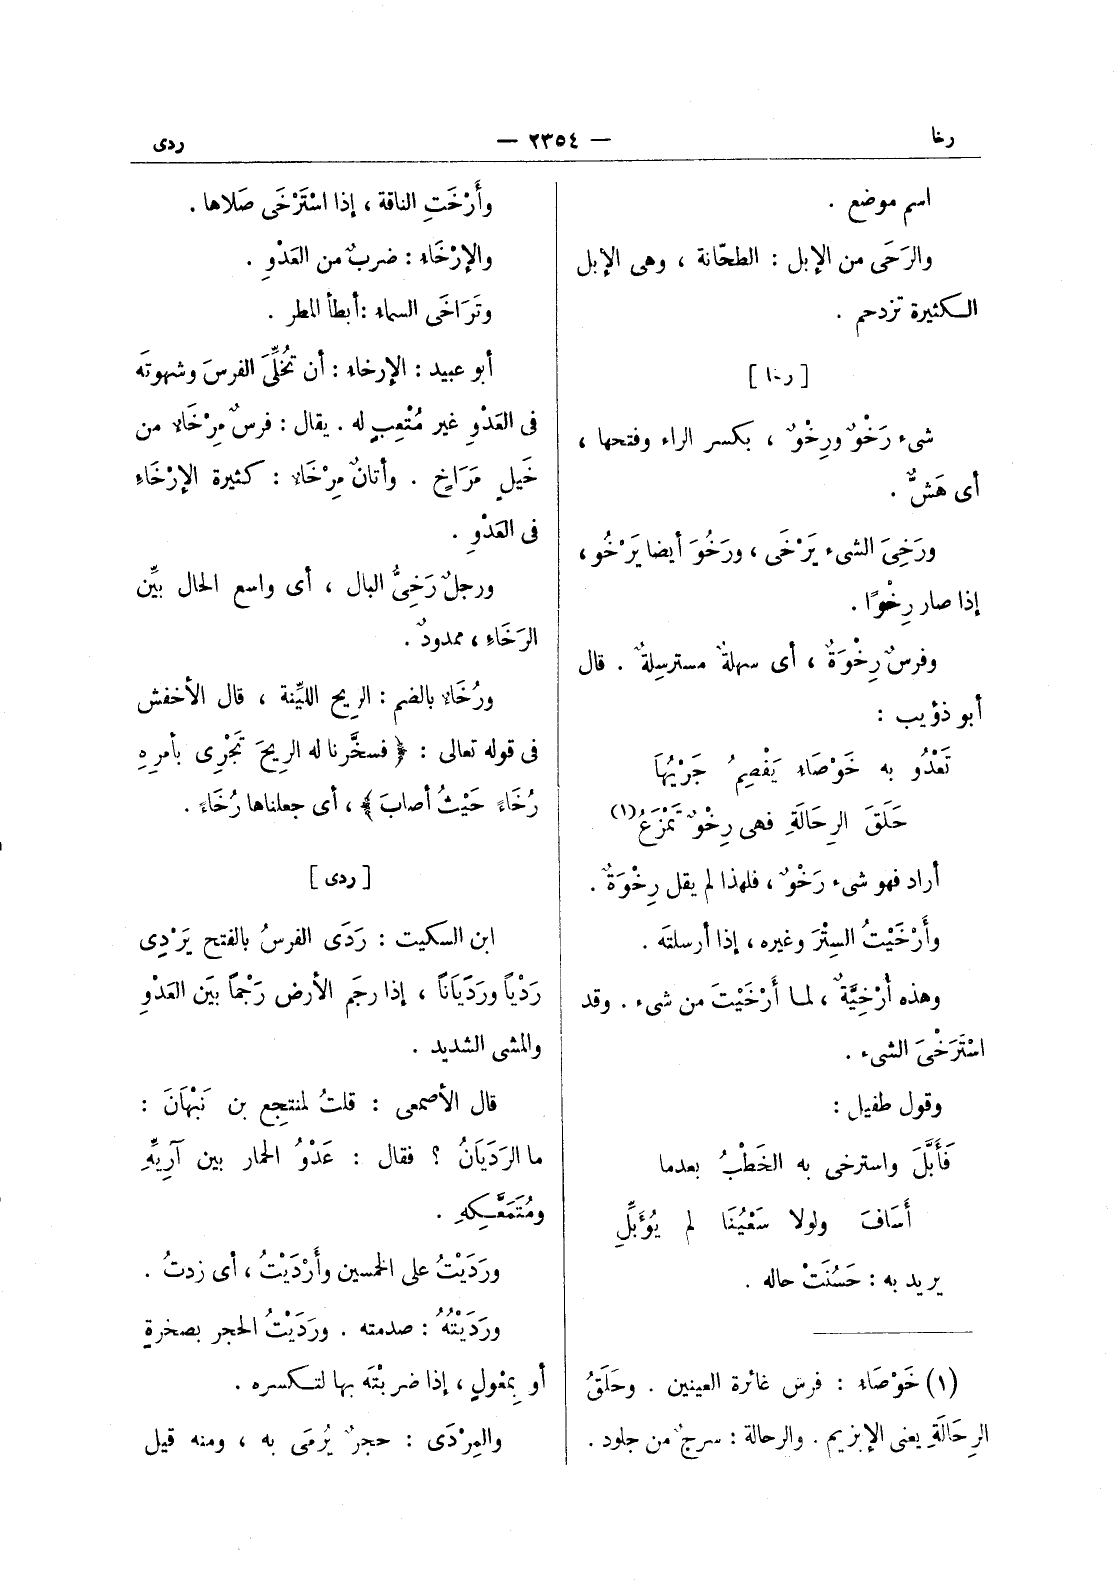 رخا
— ٢٣٥٤ —
ردى
اسم موضع .
والرَحَى من الإبل : الطحّانة ، وهى الإبل
الكثيرة تزدحم .
[ رخا ]
شىء رَخْوٌ ورِخْوٌ ، بكسر الراء وفتحها ،
أى هَشٌّ .
ورَخِىَ الشىء يَرْخَى ، ورَخُوَ أيضا يَرْخُو ،
إذا صار رِخْوًا .
وفرسٌ رِخْوَةٌ ، أى سهلةٌ مسترسِلةٌ . قال
أبو ذؤيب :
تَعْدُو به خَوْصَاءِ يَفْصِمُ جَرْيُهَا
حَلَقَ الرِحَالَةِ فهى رِخْوٌ تَمْزَعُ(١)
أراد فهو شىء رَخْوٌ ، فلهذا لم يقل رِخْوَةٌ .
وأَرْخَيْتُ السِتْرَ وغيره ، إذا أرسلتَه .
وهذه أُرْخِيَّةٌ ، لما أَرْخَيْتَ من شىء . وقد
اسْتَرَخْىَ الشىء .
وقول طفيل :
فَأَبَّلَ واسترخى به الخَطْبُ بعدما
أَسَافَ ولولا سَعْيُنَا لم يُؤَبِّلِ
يريد به : حَسُنَتْ حاله .
(١) خَوْصَاء : فرس غائرة العينين . وحَلَقُ
الرِحَالَةِ يعنى الإبزيم . والرحالة : سرجٌ من جلود .
وأَرْخَتِ الناقة ، إذا اسْتَرْخَى صَلاها .
والإرْخَاء : ضربٌ من العَدْوِ .
وتَرَاخَى السماء : أبطأ المطر .
أبو عبيد : الإرخاء : أن تُخَلِّىَ الفرسَ وشهوتَه
فى العَدْوِ غير مُتْعِبٍ له . يقال : فرسٌ مِرْخَاء من
خَيلٍ مَرَاخٍ . وأتانٌ مِرْخَاء : كثيرة الإرْخَاءِ
فى العَدْوِ .
ورجلٌ رَخِىُّ البال ، أى واسع الحال بيِّن
الرَخَاءِ ، ممدودٌ .
ورُخَاء بالضم : الريح الليِّنة ، قال الأخفش
فى قوله تعالى : ﴿ فسخَّرنا له الريحَ تَجْرِى بأمرِهِ
رُخَاءً حَيْثُ أصابَ ﴾ ، أى جعلناها رُخَاءً .
[ ردى ]
ابن السكيت : رَدَى الفرسُ بالفتح يَرْدِى
رَدْياً ورَدَيَانًا ، إذا رجَم الأرض رَجْمًا بيَن العَدْوِ
والمشى الشديد .
قال الأصمعى : قلتُ لمنتجِع بن نَبْهَانَ :
ما الرَدَيَانُ ؟ فقال : عَدْوُ الحمار بين آرِيِّهِ
ومُتَمَعَّكِهِ .
ورَدَيْتُ على الخمسين وأَرْدَيْتُ ، أى زدتُ .
ورَدَيْتُهُ : صدمته . ورَدَيْتُ الحجر بصخرةٍ
أو بِمعْولٍ ، إذا ضربْتَه بها لتكسره .
والمِرْدَى : حجرٌ يُرْمَى به ، ومنه قيل